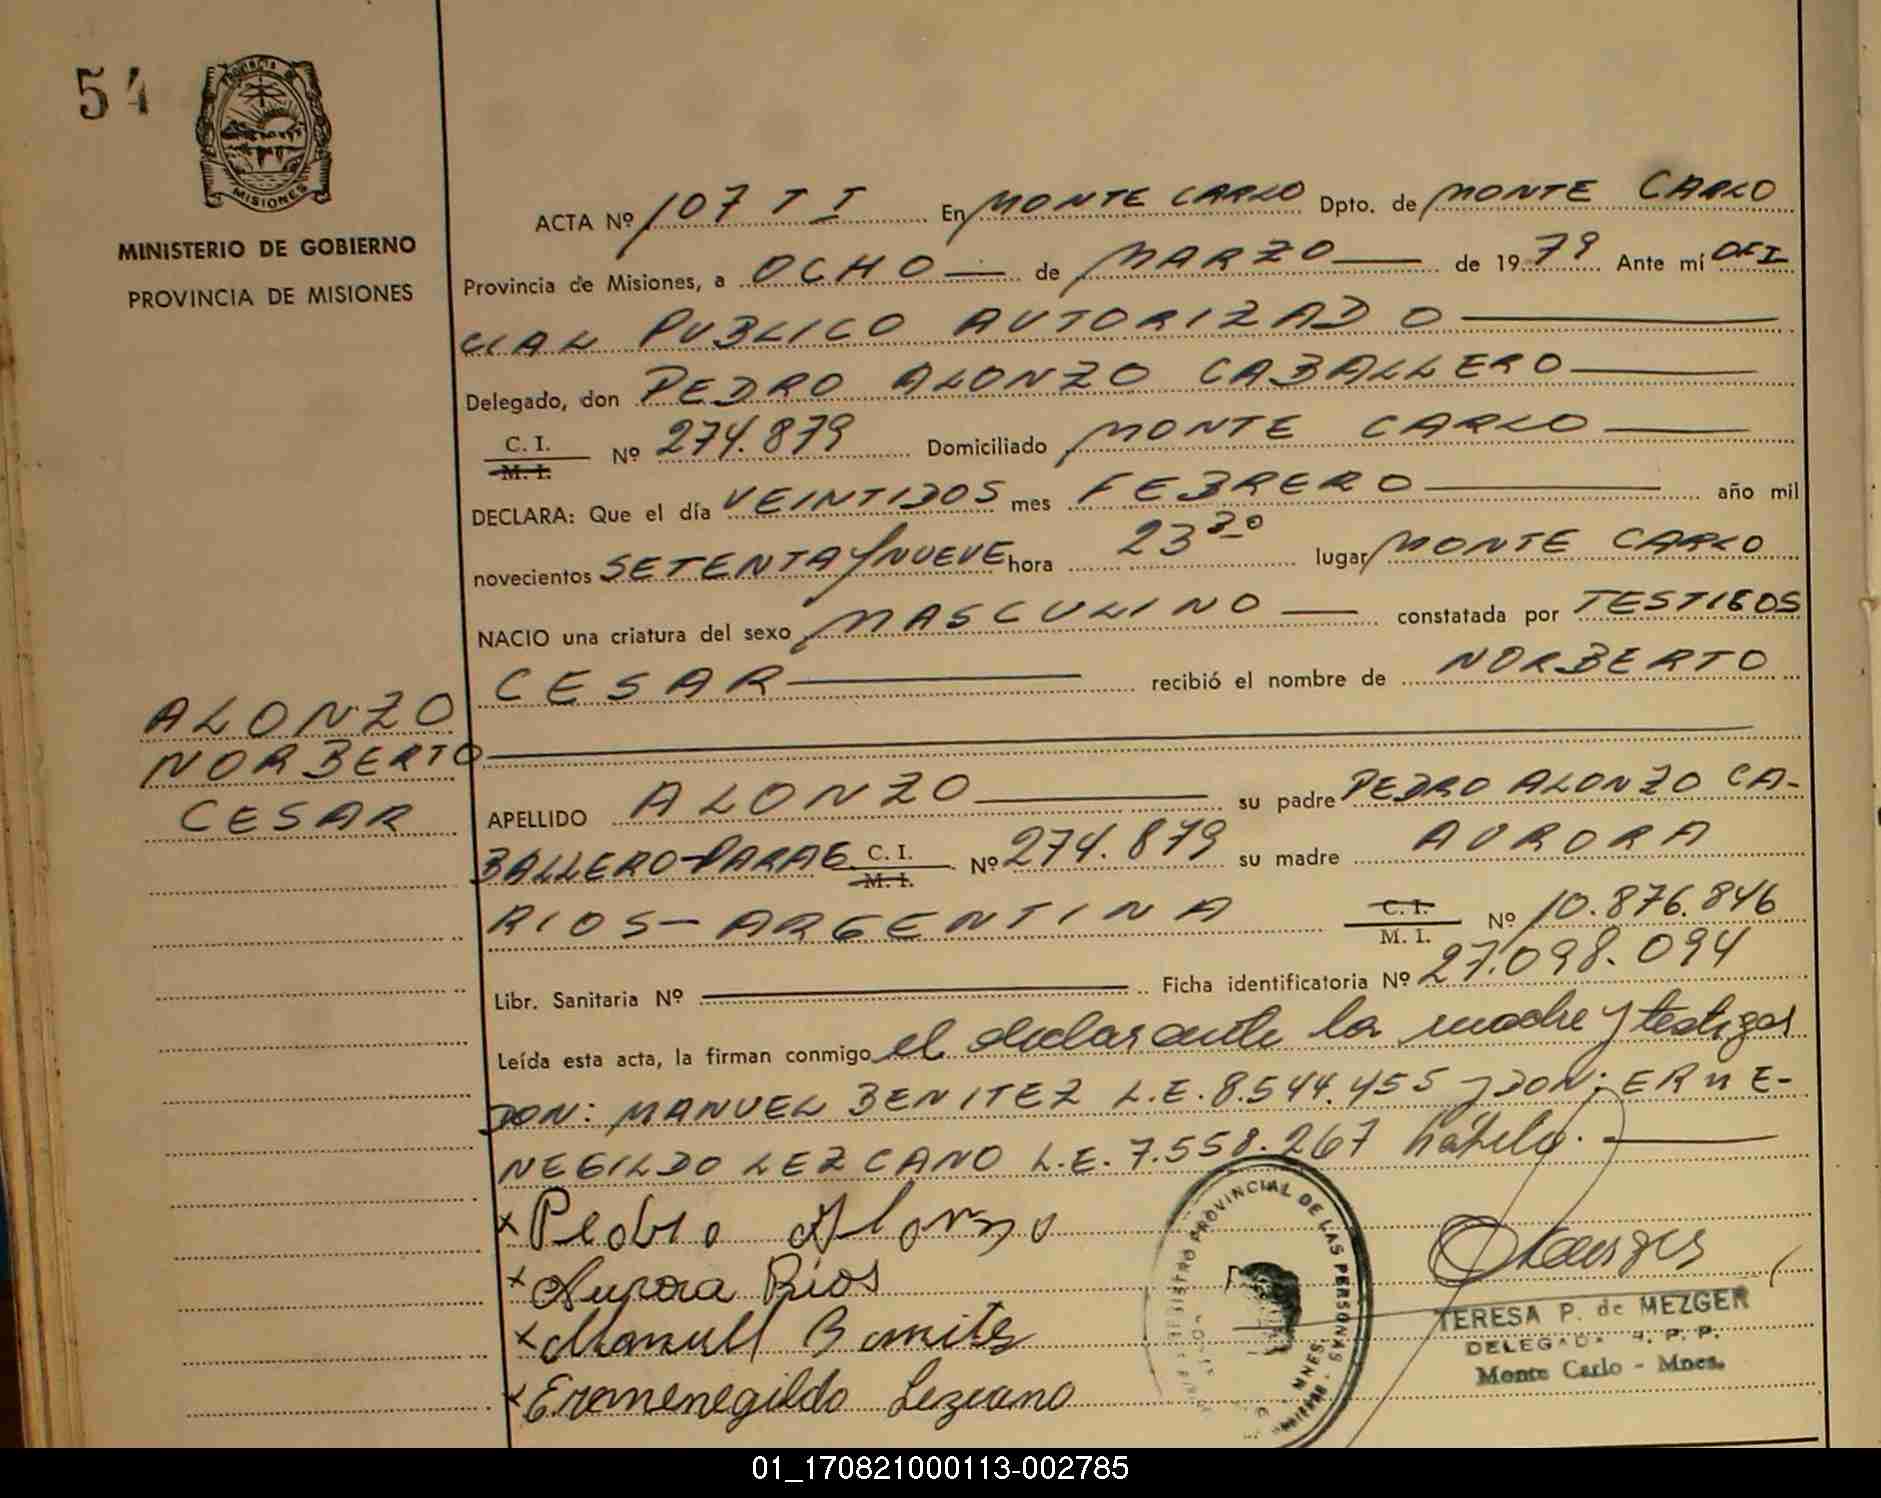 54
PROVINCIA DE
MISIONES
MINISTERIO DE GOBIERNO
PROVINCIA DE MISIONES
ACTA Nº 107 T I En MONTE CARLO Dpto. de MONTE CARLO
Provincia de Misiones, a OCHO — de MARZO — de 1979 Ante mí OFI
CIAL PUBLICO AUTORIZADO —
Delegado, don PEDRO ALONZO CABALLERO —
C. I.
M. I.
Nº 274.879 Domiciliado MONTE CARLO —
DECLARA: Que el día VEINTIDOS mes FEBRERO — año mil
novecientos SETENTA y NUEVE hora 23 30 lugar MONTE CARLO
NACIO una criatura del sexo MASCULINO — constatada por TESTIGOS
CESAR — recibió el nombre de NORBERTO
ALONZO
NORBERTO
CESAR
APELLIDO ALONZO — su padre PEDRO ALONZO CA-
BALLERO-PARAG C. I. M. I. Nº 274.879 su madre AURORA
RIOS - ARGENTINA C. I. M. I. Nº 10.876.846
Libr. Sanitaria Nº — Ficha identificatoria Nº 27.098.094
Leída esta acta, la firman conmigo el declarante la madre y testigos
DON: MANUEL BENITEZ L.E. 8.544.455 y DON: ERME-
NEGILDO LEZCANO L.E. 7.558.267 hábiles. —
x Pedro Alonzo
x Aurora Rios
x Manuel Benites
x Ermenegildo Lezcano
REGISTRO PROVINCIAL DE LAS PERSONAS
MNES.
TERESA P. de MEZGER
DELEGADA R. P. P.
Monte Carlo - Mnes.
01_170821000113-002785